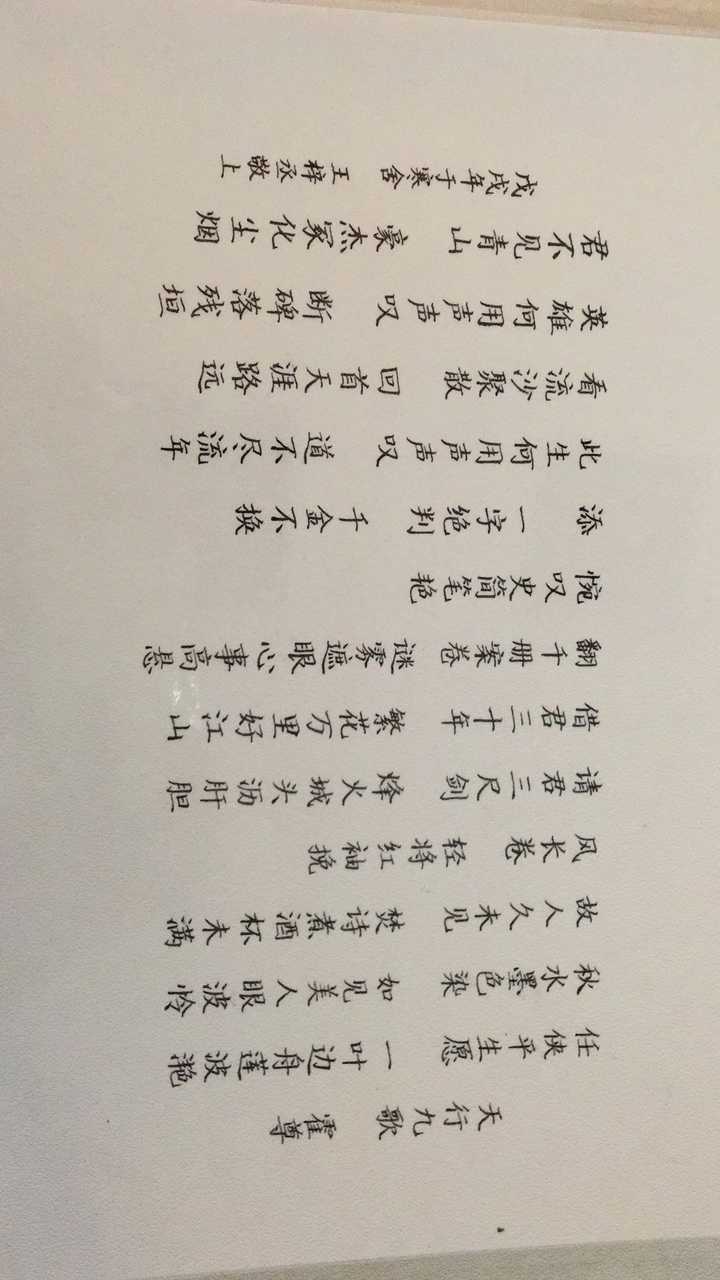 天行九歌 霍尊
任侠平生愿 一叶边舟莲波滟
秋水墨色染 如见美人眼波怜
故人久未见 焚诗煮酒杯未满
风长卷 轻将红袖挽
请君三尺剑 烽火城头沥肝胆
借君三十年 繁花万里好江山
翻千册案卷 谜雾遮眼心事高悬
惋叹史简笔艳
添 一字绝判 千金不换
此生何用声声叹 道不尽流年
看流沙聚散 回首天涯路远
英雄何用声声叹 断碑落残垣
君不见青山 豪杰冢化尘烟
戊戌年于寒舍 王梓丞敬上